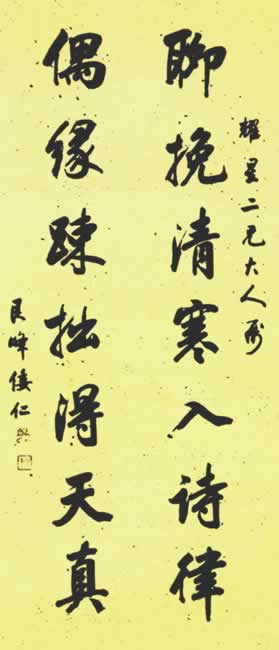 耀星二兄大人属
聊挽清寒入诗律
偶缘踈拙得天真
艮峰倭仁